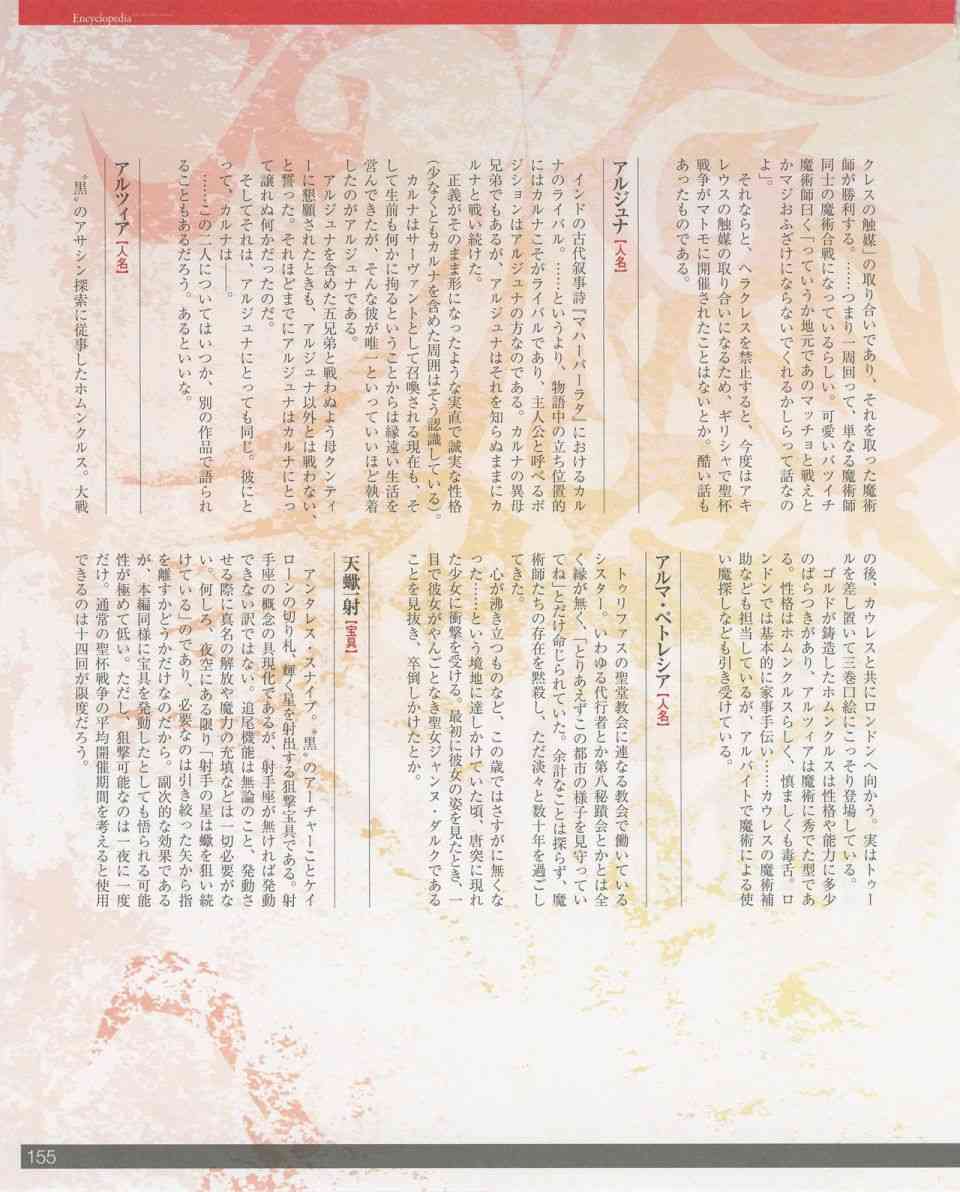 Encyclopedia
クレスの触媒」の取り合いであり、それを取った魔術
師が勝利する。……つまり一周回って、単なる魔術師
同士の魔術合戦になっているらしい。可愛いバツイチ
魔術師曰く「っていうか地元であのマッチョと戦えと
かマジおふざけにならないでくれるかしらって話なの
よ」。
それならと、ヘラクレスを禁止すると、今度はアキ
レウスの触媒の取り合いになるため、ギリシャで聖杯
戦争がマトモに開催されたことはないとか。酷い話も
あったものである。
アルジュナ【人名】
インドの古代叙事詩『マハーバーラタ』におけるカル
ナのライバル。……というより、物語中の立ち位置的
にはカルナこそがライバルであり、主人公と呼べるポ
ジションはアルジュナの方なのである。カルナの異母
兄弟でもあるが、アルジュナはそれを知らぬままにカ
ルナと戦い続けた。
正義がそのまま形になったような実直で誠実な性格
(少なくともカルナを含めた周囲はそう認識している)。
カルナはサーヴァントとして召喚される現在も、そ
して生前も何かに拘るということからは縁遠い生活を
営んできたが、そんな彼が唯一といっていいほど執着
したのがアルジュナである。
アルジュナを含めた五兄弟と戦わぬよう母クンティ
ーに懇願されたときも、アルジュナ以外とは戦わない、
と誓った。それほどまでにアルジュナはカルナにとっ
て譲れぬ何かだったのだ。
そしてそれは、アルジュナにとっても同じ。彼にと
って、カルナは――。
……この二人についてはいつか、別の作品で語られ
ることもあるだろう。あるといいな。
アルツィア【人名】
〝黒〟のアサシン探索に従事したホムンクルス。大戦
の後、カウレスと共にロンドンへ向かう。実はトゥー
ルを差し置いて三巻口絵にこっそり登場している。
ゴルドが鋳造したホムンクルスは性格や能力に多少
のばらつきがあり、アルツィアは魔術に秀でた型であ
る。性格はホムンクルスらしく、慎ましくも毒舌。ロ
ンドンでは基本的に家事手伝い……カウレスの魔術補
助なども担当しているが、アルバイトで魔術による使
い魔探しなども引き受けている。
アルマ・ペトレシア【人名】
トゥリファスの聖堂教会に連なる教会で働いている
シスター。いわゆる代行者とか第八秘蹟会とかとは全
く縁が無く、「とりあえずこの都市の様子を見守ってい
てね」とだけ命じられていた。余計なことは探らず、魔
術師たちの存在を黙殺し、ただ淡々と数十年を過ごし
てきた。
心が沸き立つものなど、この歳ではさすがに無くな
った……という境地に達しかけていた頃、唐突に現れ
た少女に衝撃を受ける。最初に彼女の姿を見たとき、一
目で彼女がやんごとなき聖女ジャンヌ・ダルクである
ことを見抜き、卒倒しかけたとか。
天蠍一射【宝具】
アンタレス・スナイプ。〝黒〟のアーチャーことケイ
ローンの切り札、輝く星を射出する狙撃宝具である。射
手座の概念の具現化であるが、射手座が無ければ発動
できない訳ではない。追尾機能は無論のこと、発動さ
せる際に真名の解放や魔力の充填などは一切必要がな
い。何しろ、夜空にある限り「射手の星は蠍を狙い続
けている」のであり、必要なのは引き絞った矢から指
を離すかどうかだけなのだから。副次的な効果である
が、本編同様に宝具を発動したとしても悟られる可能
性が極めて低い。ただし、狙撃可能なのは一夜に一度
だけ。通常の聖杯戦争の平均開催期間を考えると使用
できるのは十四回が限度だろう。
155